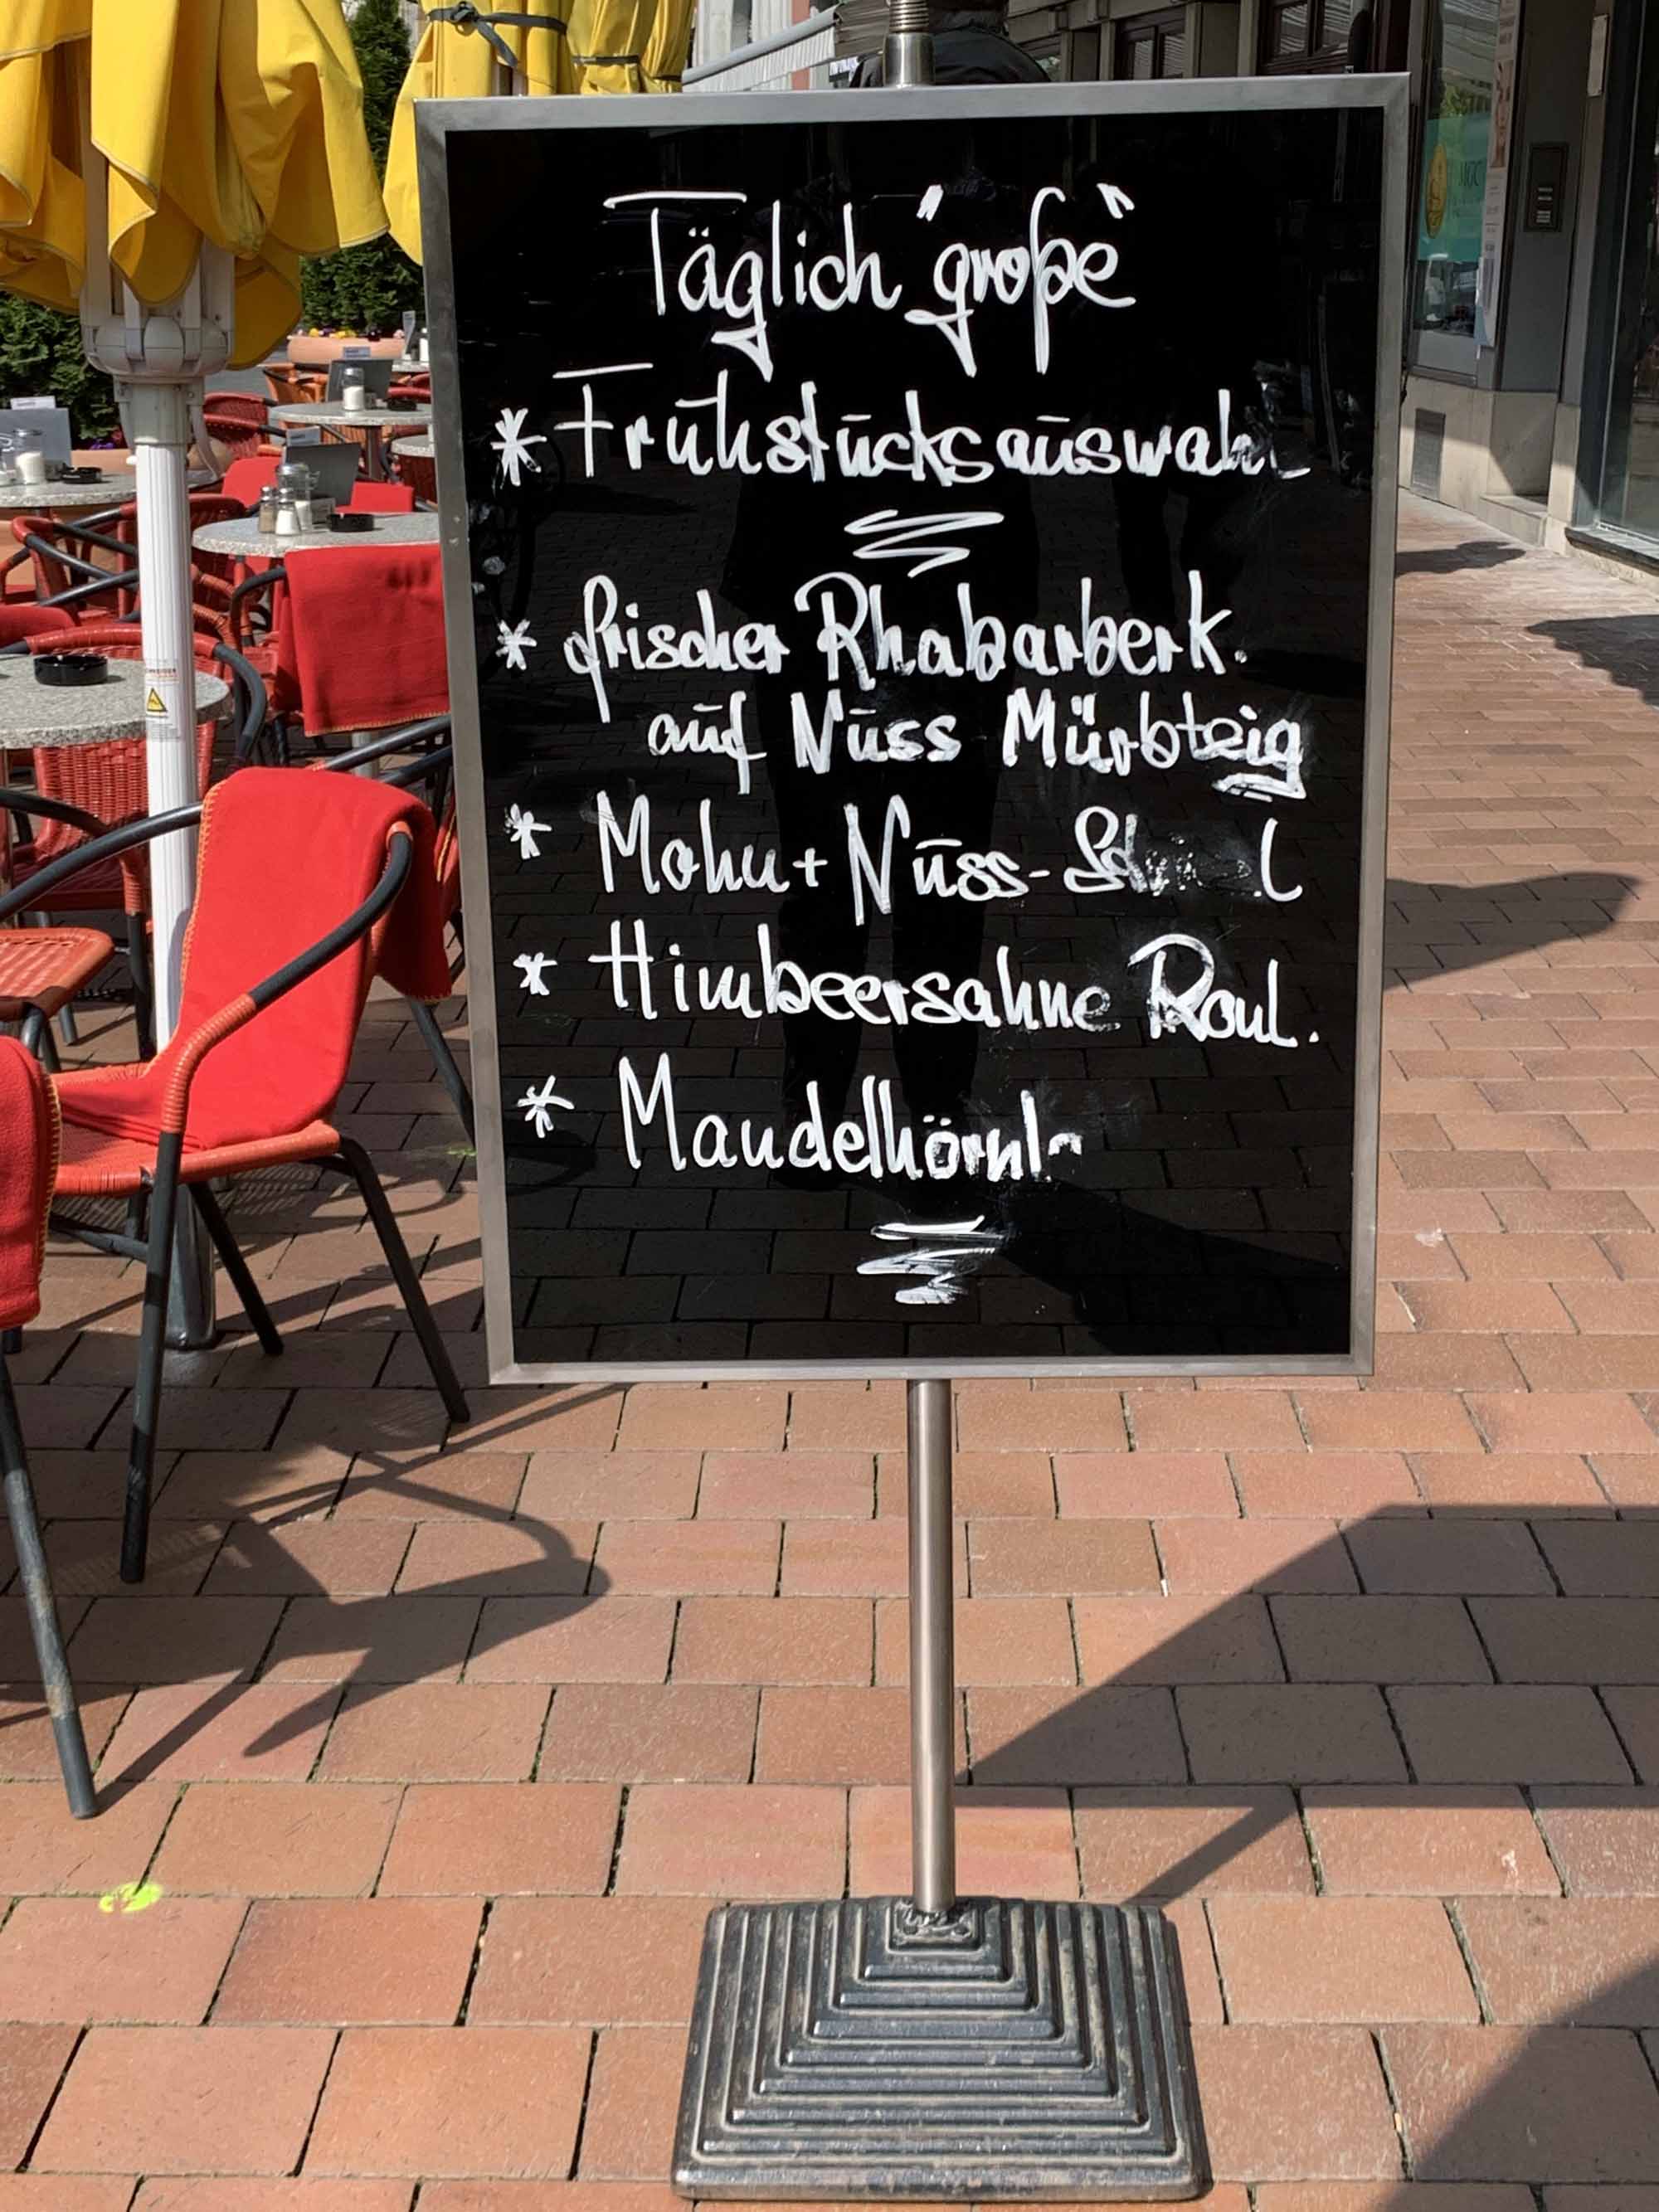 Täglich "große"
* Frühstücksauswahl
* frischer Rhabarberk.
auf Nuss Mürbteig
* Mohn + Nuss-
* Himbeersahne Roul.
* Mandelhörnle